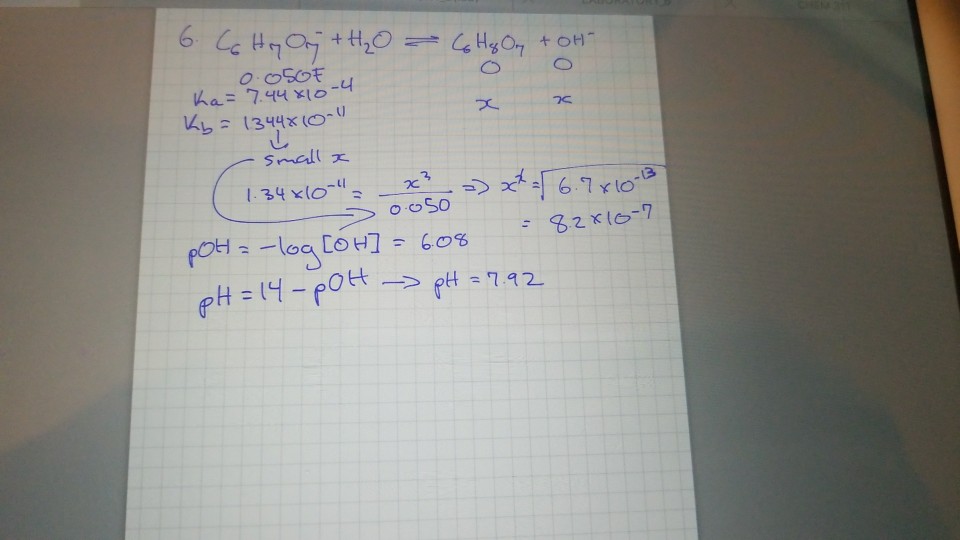 6. C₆H₇O₇⁻ + H₂O ⇌ C₆H₈O₇ + OH⁻
0.050F O O
Ka = 7.44 x 10⁻⁴ x x
Kb = 1344 x 10⁻¹¹
↓
small x
1.34 x 10⁻¹¹ = x²/0.050 => x = √6.7 x 10⁻¹³
= 8.2 x 10⁻⁷
pOH = -log[OH] = 6.08
pH = 14 - pOH → pH = 7.92